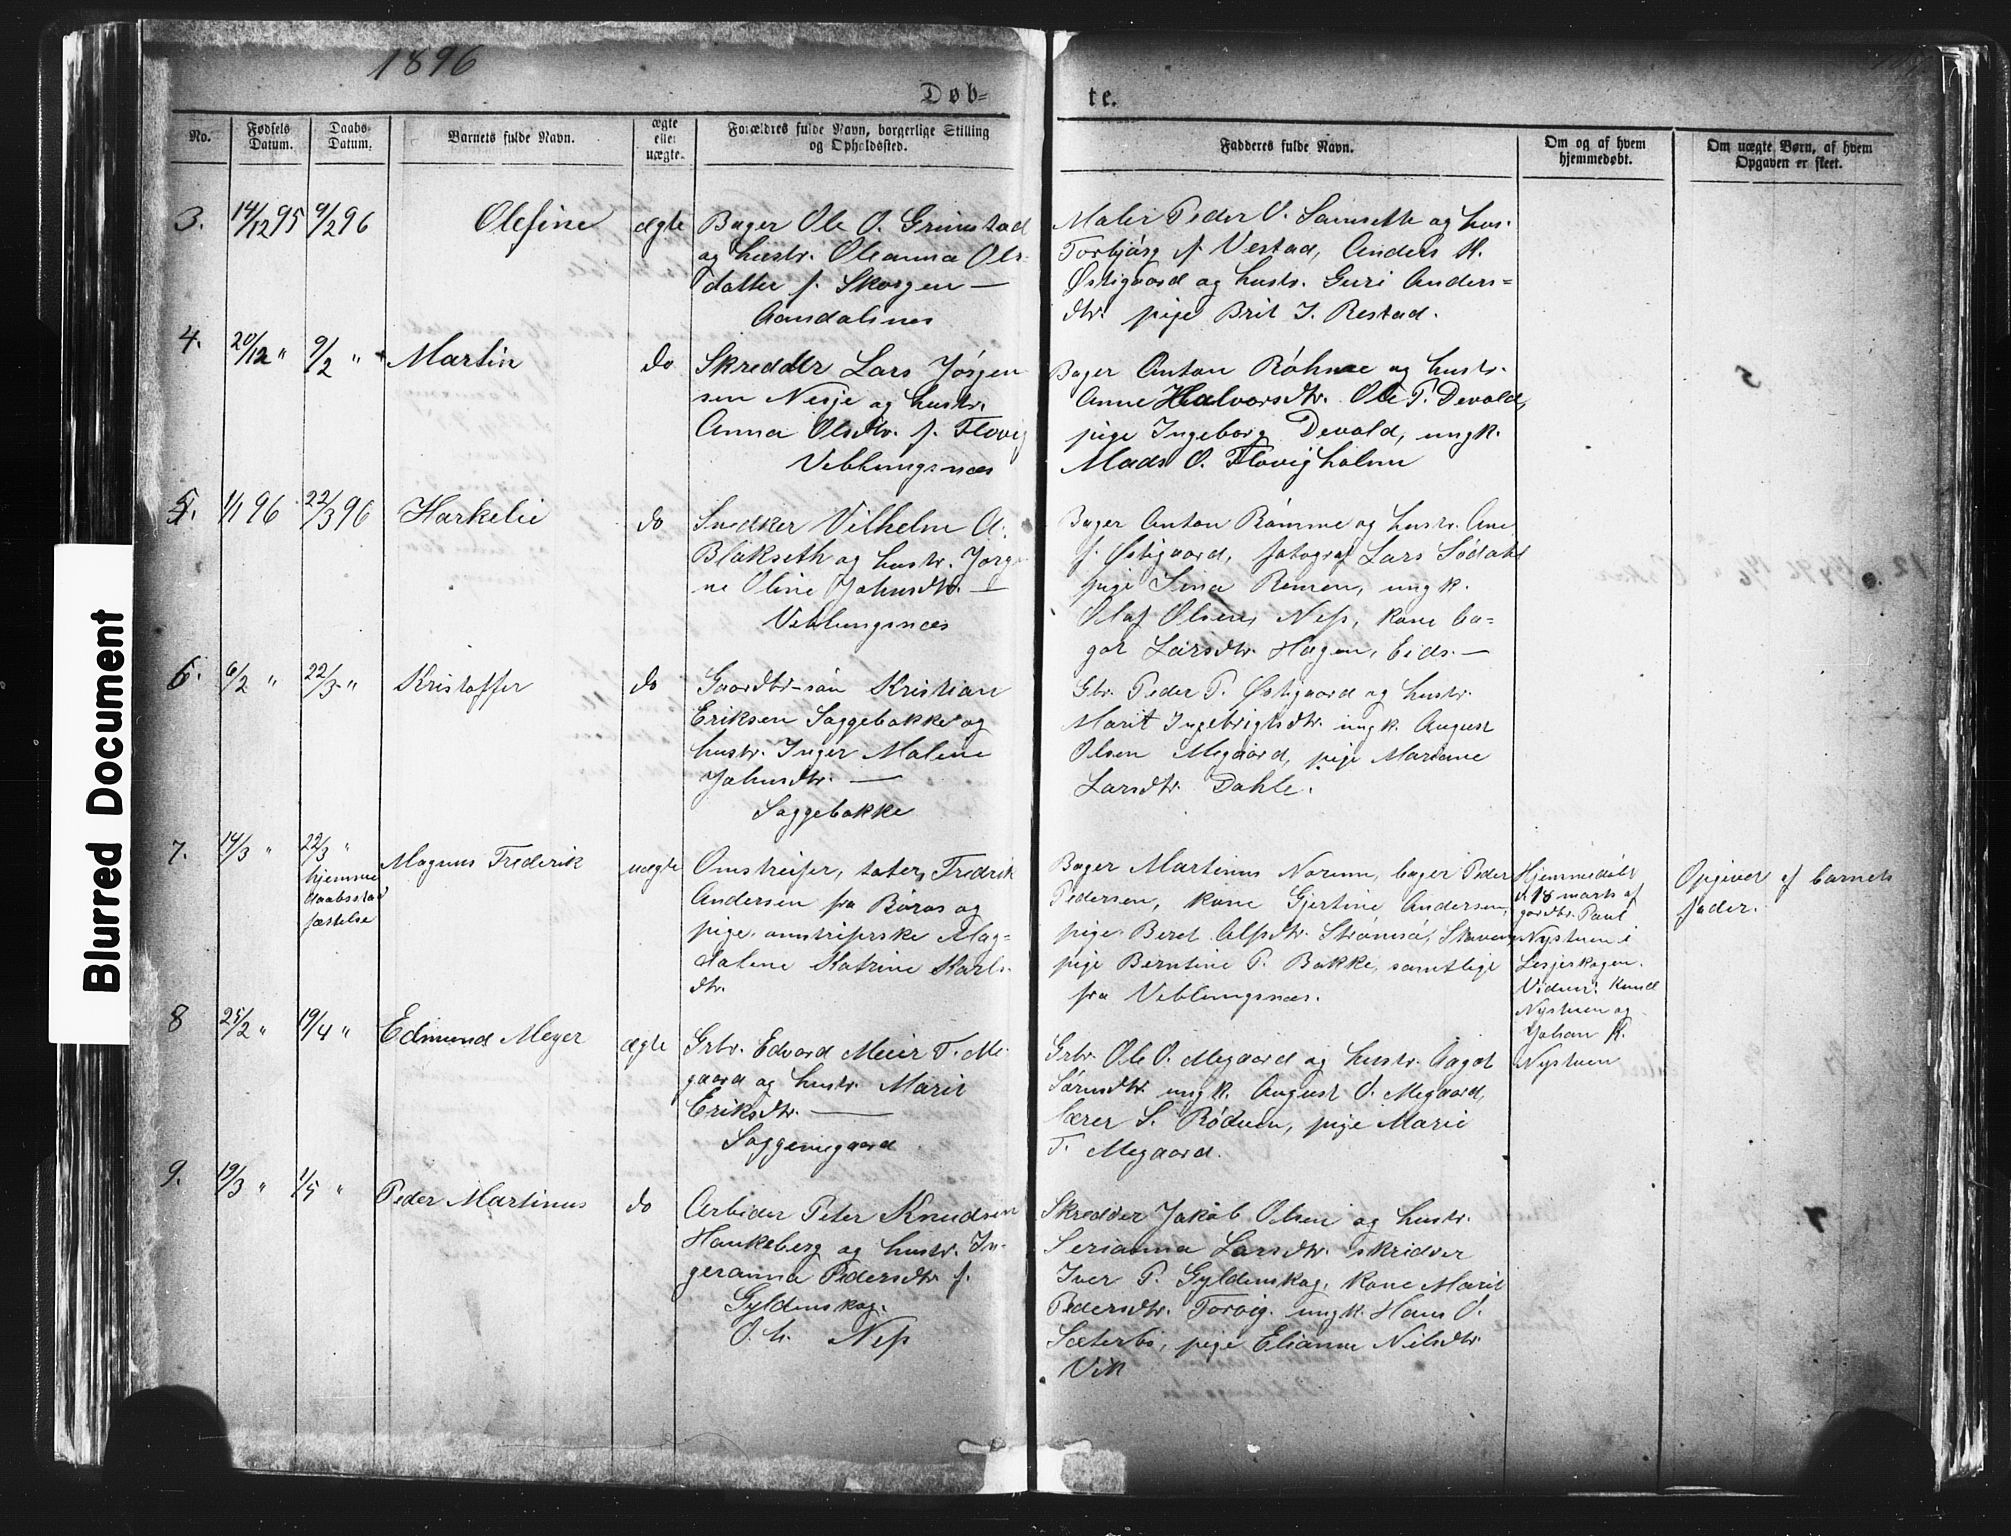 1896
Døb-
te.
No.
Fødsels Datum.
Daabs Datum.
Barnets fulde Navn.
ægte eller uægte.
Forældres fulde Navn, borgerlige Stilling og Opholdssted.
Fadderes fulde Navn.
Om og af hvem hjemmedøbt.
Om uægte Børn, af hvem Opgaven er skeet.
3.
14/12 95
9/2 96
Olefine
ægte
Bager Ole O. Grimstad
og hustr. Oleanna Ols-
datter f. Skorgen —
Aandalsnes
Maler Peder O. Samseth og hus.
Torbjørg f. Vestad, Anders K.
Østigaard og hustr. Guri Anders=
dtr. pige Brit J. Restad.
4.
20/12 "
9/2 "
Martin
do
Skredder Lars Jörgen
sen Nesje og hustr.
Anna Olsdtr. f. Flovig
Veblungsnæs
Bager Anton Röhme og hustr.
Anne Halvorsdtr. Ole P. Devold,
pige Ingeborg Devold, ungk.
Mads O. Flovigholm
5
5.
1/1 96
22/3 96
Harkelie
do
Snedker Vilhelm A.
Blakseth og hustr. Jørgi
ne Oline Johnsdtr. —
Veblungsnæs
Bager Anton Römme og hustr. Ane
f. Østigaard, fotograf Lars Södahl
pige Sina Remen, ungk.
Olaf Olsen Nesp, kone Aa=
got Larsdtr. Hagen, Eids. —
6.
6/2 "
22/3 "
Kristoffer
do
Gaardbr-sön Kristian
Eriksen Soggebakke og
hustr. Inger Malene
Johnsdtr. —
Soggebakke
Gbr. Peder P. Østigaard og hustr.
Marit Ingebrigtsdtr. ungk. August
Olsen Megaard, pige Mariane
Larsdtr. Dahle.
7.
14/3 "
22/3 "
hjemme
daabsstad
fæstelse
Magnus Frederik
uægte
Omstreifer, tater, Fredrik
Andersen fra Röros og
pige omstriperske Mag=
dalene Katrine Karls-
dtr.
Bager Martinus Norum, bager Peder
Pedersen, kone Gjertine Andersen,
pige Beret Alfsdtr. Strømsø, Staveng
pige Berntine P. Bakke, samtlige
fra Veblungsnæs.
Hjemmedöbt
d. 18 marts af
gardbr. Paul
Nystuen i
Lesjeskogen.
Vidner: Knud
Nystuen og
Johan K.
Nystuen
Opgivet af barnets
fader.
8
25/2 "
19/4 "
Edmund Meyer
ægte
Grbr. Edvard Meier T. Me
gaard og hustr. Marit
Eriksdtr. —
Soggemegaard
Grbr. Ole O. Megaard og hustr. Aagot
Sörnsdtr. ungk. August O. Megaard,
lærer S. Röduen, pige Marie
T. Megaard.
9.
19/3 "
1/5 "
Peder Martinus
do
Arbeider Peter Knudsen
Haukeberg og hustr. In-
geranna Pedersdtr. f.
Gyldenskog.
O. h. Nesp
Skredder Jakob Olsen og hustr.
Serianna Larsdtr. skridder
Iver P. Gyldenskog, kone Marit
Pedersdtr. Torvig. ungk. Hans O.
Sæterbö, pige Elianne Nilsdtr.
Vik
7
Blurred Document